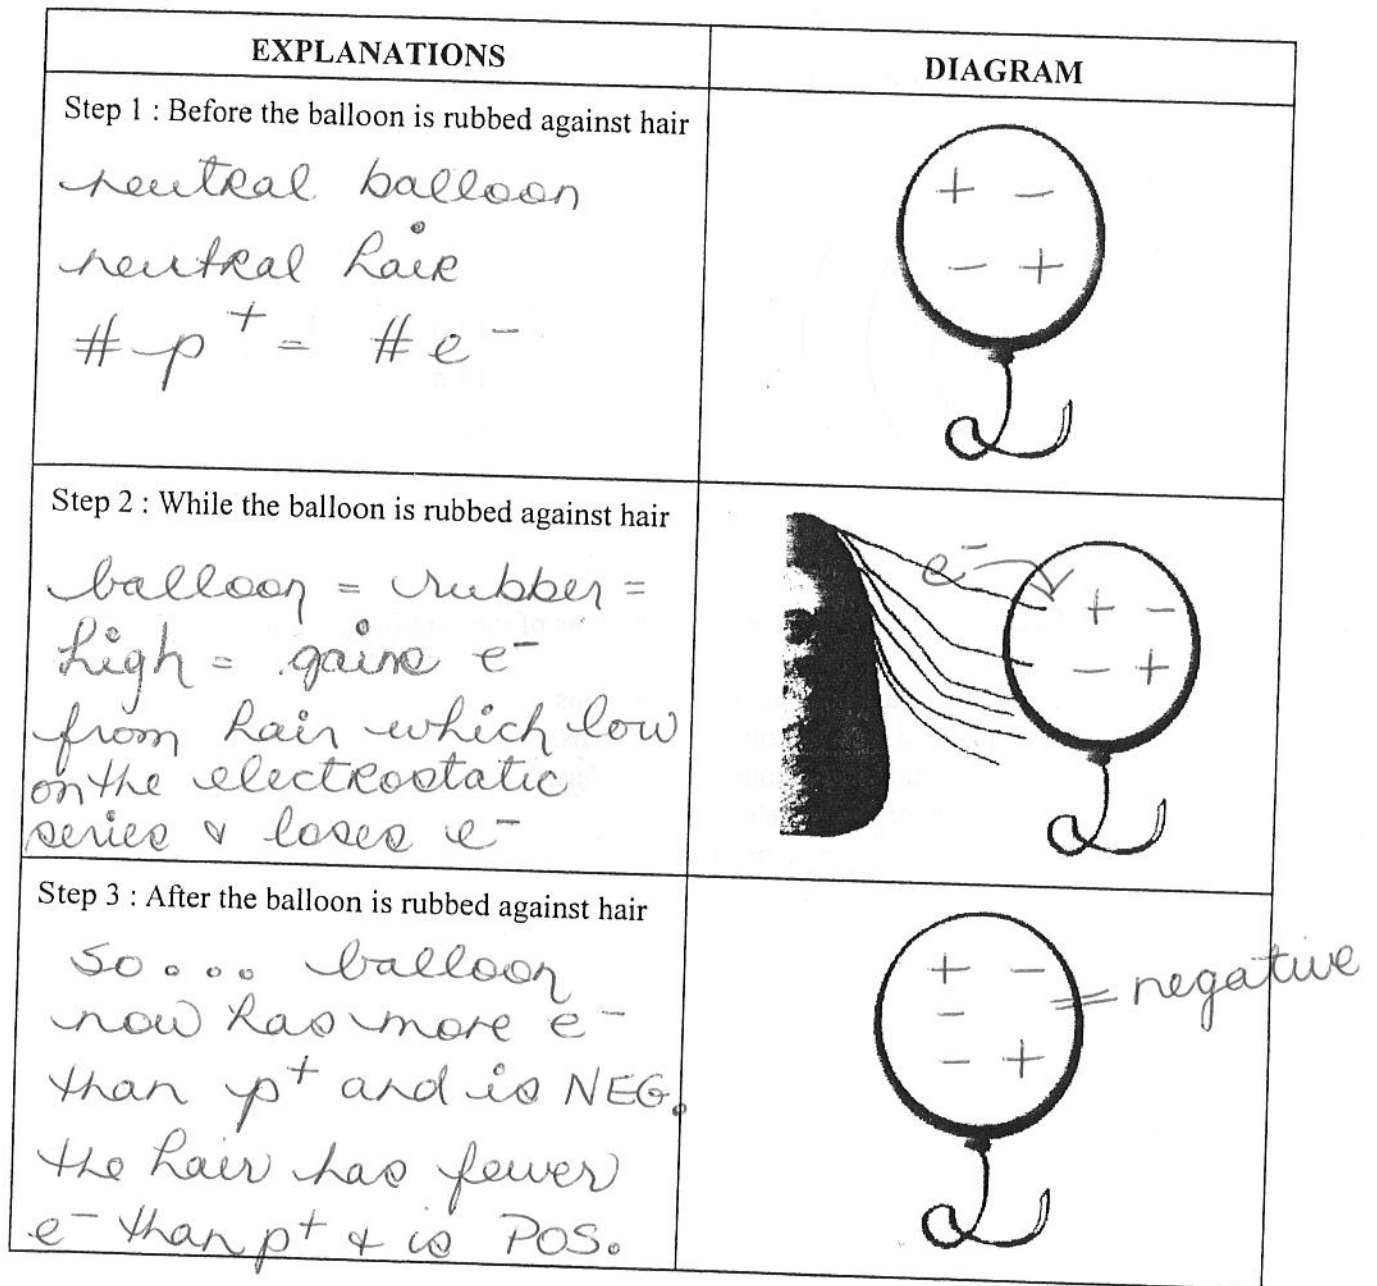 EXPLANATIONS
DIAGRAM
Step 1 : Before the balloon is rubbed against hair
neutral balloon
neutral hair
# p + = # e -
+ -
- +
Step 2 : While the balloon is rubbed against hair
balloon = rubber =
high = gains e-
from hair which low
on the electrostatic
series & loses e-
e-
+ -
- +
Step 3 : After the balloon is rubbed against hair
so.... balloon
now has more e-
than p+ and is NEG.
the hair has fewer
e- than p+ & is POS.
+ -
-
- +
= negative